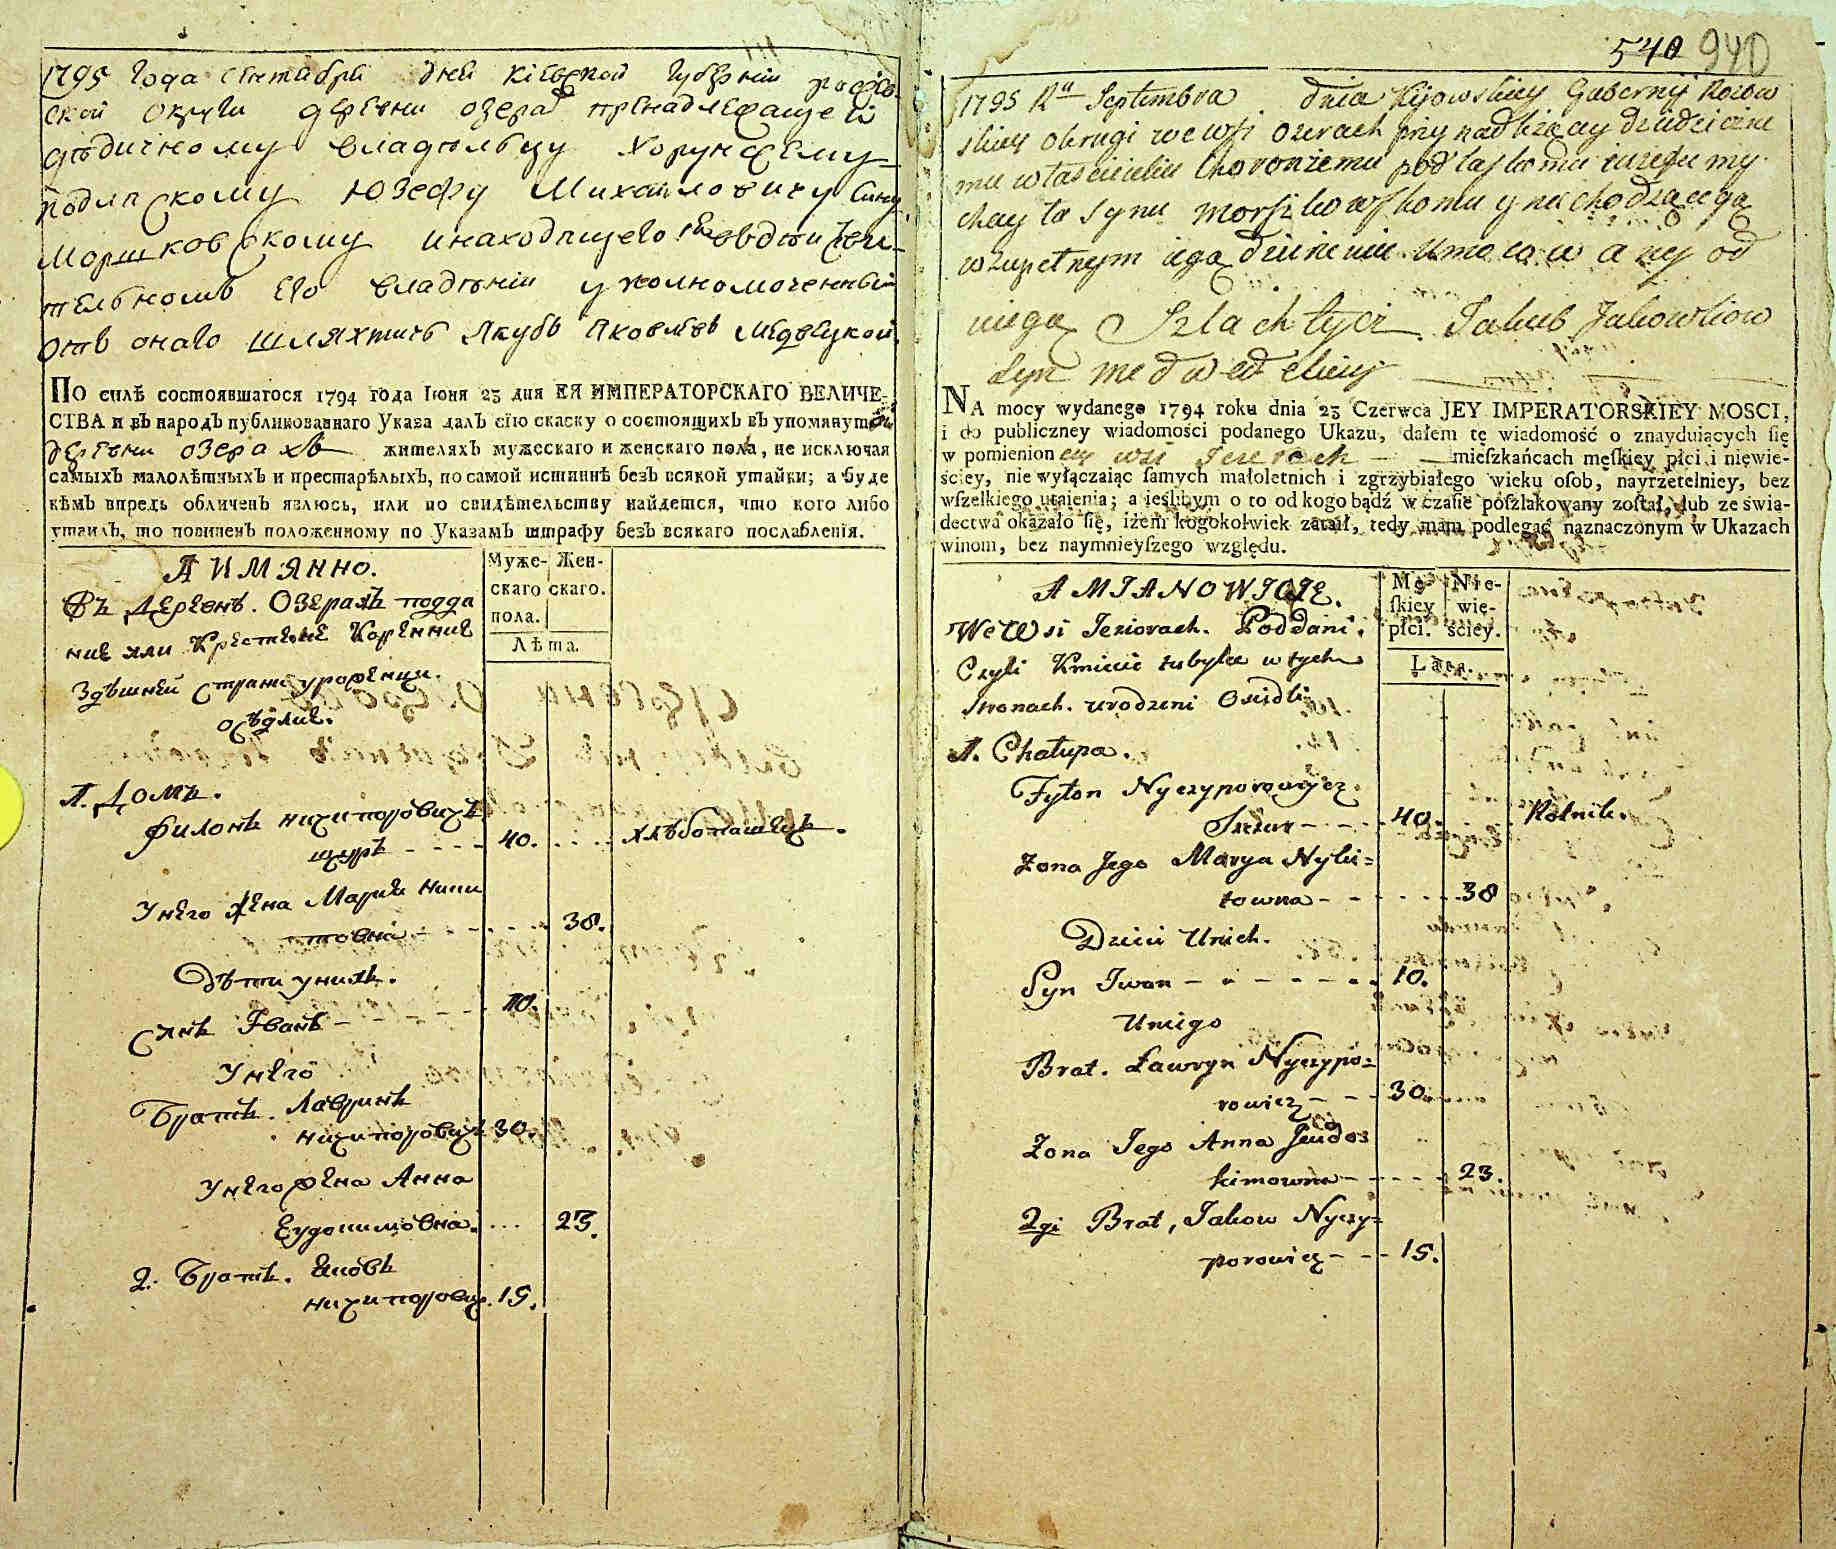 1795 года Сентября дня Кіевской Губерніи
ской округи деревни озера пренадлежащей
дѣдичному владѣльцу Хорунжему
Подляскому Юзефу Михаиловичу Сыну
Моршковскому инаходящегося
тельномъ его владѣніи уполномоченный
отъ онаго шляхтичь Якубъ Яковлевъ Медвецкой
ПО силѣ состоявшагося 1794 года Іюня 23 дня ЕЯ ИМПЕРАТОРСКАГО ВЕЛИЧЕ-
СТВА и въ народъ публикованнаго Указа далъ сїю скаску о состоящихъ въ упомянутой
деревни озерахъ жителяхъ мужескаго и женскаго пола, не исключая
самыхъ малолѣтныхъ и престарѣлыхъ, по самой истиннѣ безъ всякой утайки; а буде
кѣмъ впредь обличенъ явлюсь, или по свидѣтельству найдется, что кого либо
утаилъ, то повиненъ положенному по Указамъ штрафу безъ всякаго послабленїя.
А ИМЯННО.
Муже- Жен-
скаго скаго.
пола.
Лѣта.
Въ Деревнѣ. Озерахъ подда
ние или Крестьяне Коренние
Здѣшней страни урожENци.
осѣдлие.
1. Домъ.
Филонъ Ничипоровичъ
щуръ - - - - 40. . . . . хлѣбопашецъ.
Унего жена Марія Ники
товна - - - - 38.
Дѣти унихъ.
Сынъ Іванъ - - - - - 10.
Унего
Братъ. Лавринъ
Ничипоровичъ 30.
Унего жена Анна
Еудокимовна. . . . 23.
2. Братъ. Яковъ
Ничипорович. 15.
540 940
1795 Ru Septembra dnia Kijowskiey Gubernij Rozow
skiey okrugi we wsi ozerach przynadlezącey dziedziczne
mu włascicielu Choronżemu podlaskomu iuzefu my
chayla Synu morszkowskomu y nachodzącega
wzupełnym iega dzierżeniu umocowaney od
niega Szlachtycz Jakub Jakowliow
Syn medwedckiey
NA mocy wydanego 1794 roku dnia 23 Czerwca JEY IMPERATORSKIEY MOSCI,
i do publiczney wiadomości podanego Ukazu, dałem tę wiadomość o znayduiących się
w pomienioney wsi Jezerach mieſzkańcach męſkiey płci i niewie-
ściey, nie wyłączaiąc ſamych małoletnich i zgrzybiałego wieku oſob, nayrzetelniey, bez
wſzelkiego utaienia; a ieślibym o to od kogo bądź w czaſie poſzlakowany zoſtał, lub ze świa-
dectwa okazało się, iżem kogokolwiek zataił, tedy mam podlegać naznaczonym w Ukazach
winom, bez naymnieyſzego względu.
A MIANOWICIE.
Mę- Nie-
ſkiey wie-
płci. ściey.
Lata.
We Wsi Jeziorach. Poddani.
Czyli Kmiecie tubylce w tych
Stronach. urodzeni Osiedli
1. Chałupa.
Fylon Nyczyporowycz.
Szczur - - - - 40. . . . Rolnik.
Zona Jego Marya Nyki=
towna - - - - - 38
Dzieci Unich.
Syn Iwan - - - - - 10.
Uniego
Brat. Ławryn Nyczypo=
rowicz - - - 30
Zona Jego Anna Jeudo=
kimowna - - - - - 23.
2gi Brat, Jakow Nyczy=
porowicz - - - 15.